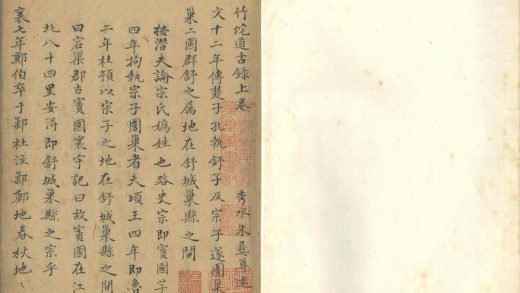 竹垞道古錄上卷 秀水朱彝尊述
文十二年傳楚子孔執舒子及宗子遂圍巢
巢二國群舒之屬地在舒城巢縣之間
按潛夫論宗氏嬀姓也路史宗即賨國芋
四年拘執宗子圍巢者夫頃王四年即魯
二年杜預以宗子之地在舒城巢縣之間
曰宕渠郡古賨國寰宇記曰故賨國在江
北八十四里安得即舒城巢縣之宗乎
襄七年鄭伯卒于鄵杜注鄵鄭地春秋地